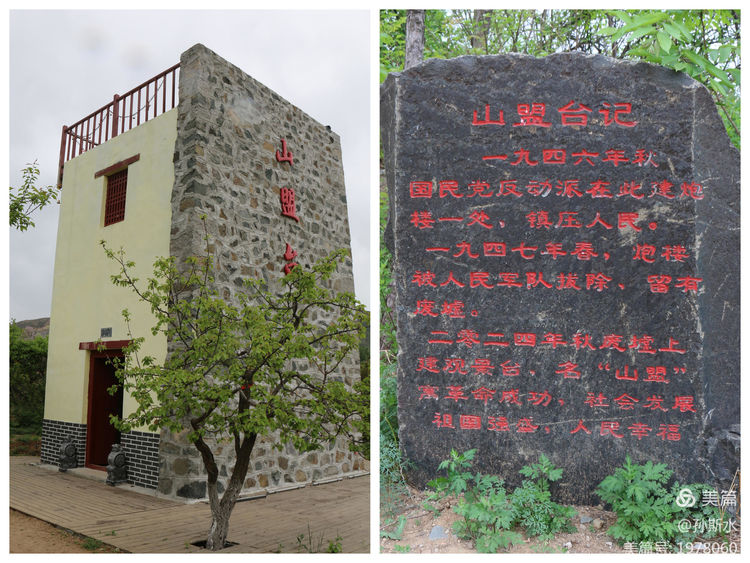 山盟台
山盟台记
一九四六年秋
国民党反动派在此建炮
楼一处、镇压人民。
一九四七年春，炮楼
被人民军队拔除、留有
废墟。
二零二四年秋废墟上
建观景台，名“山盟”
寓革命成功，社会发展
祖国强盛，人民幸福
美篇
@孙斯水
美篇号:1978060